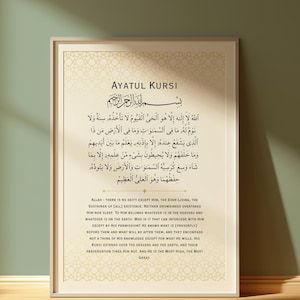 Ayatul Kursi
بِسْمِ اللهِ الرَّحْمٰنِ الرَّحِيْمِ
اللهُ لَا إِلٰهَ إِلَّا هُوَ الْحَيُّ الْقَيُّومُ لَا تَأْخُذُهُ سِنَةٌ وَلَا
نَوْمٌ لَهُ مَا فِي السَّمَاوَاتِ وَمَا فِي الْأَرْضِ مَن ذَا
الَّذِي يَشْفَعُ عِندَهُ إِلَّا بِإِذْنِهِ يَعْلَمُ مَا بَيْنَ أَيْدِيهِمْ
وَمَا خَلْفَهُمْ وَلَا يُحِيطُونَ بِشَيْءٍ مِّنْ عِلْمِهِ إِلَّا بِمَا
شَاءَ وَسِعَ كُرْسِيُّهُ السَّمَاوَاتِ وَالْأَرْضَ وَلَا يَئُودُهُ
حِفْظُهُمَا وَهُوَ الْعَلِيُّ الْعَظِيمُ
Allah - there is no deity except Him, the Ever-Living, the
Sustainer of [all] existence. Neither drowsiness overtakes
Him nor sleep. To Him belongs whatever is in the heavens and
whatever is on the earth. Who is it that can intercede with Him
except by His permission? He knows what is [presently]
before them and what will be after them, and they encompass
not a thing of His knowledge except for what He wills. His
Kursi extends over the heavens and the earth, and their
preservation tires Him not. And He is the Most High, the Most
Great